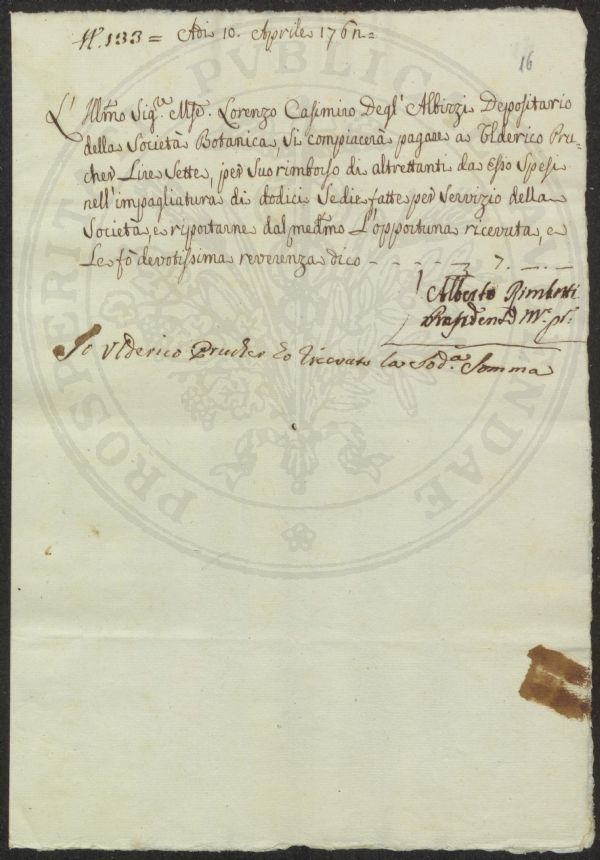 N. 133 = Adi 10. Aprile 176
16
L' Illmo Sigre. Mse. Lorenzo Casimiro Degl' Albizzi Depositario
della Società Botanica, Si compiacerà pagare a Vlderico Pru=
cher Lire Sette, per Suo rimborso di altrettanti da Esso Spesi
nell'impagliatura di dodici Sedie fatte per Servizio della
Società, e riportarne dal medmo L'opportuna ricevuta, e
Le fò devotissima reverenza dico - - - - - 7. - . -
Alberto Rimbotti
Presidente
Io Vlderico Prucher ho riceuto la Sod.a Somma
PROSPERITATI PVBLICAE AVGENDAE